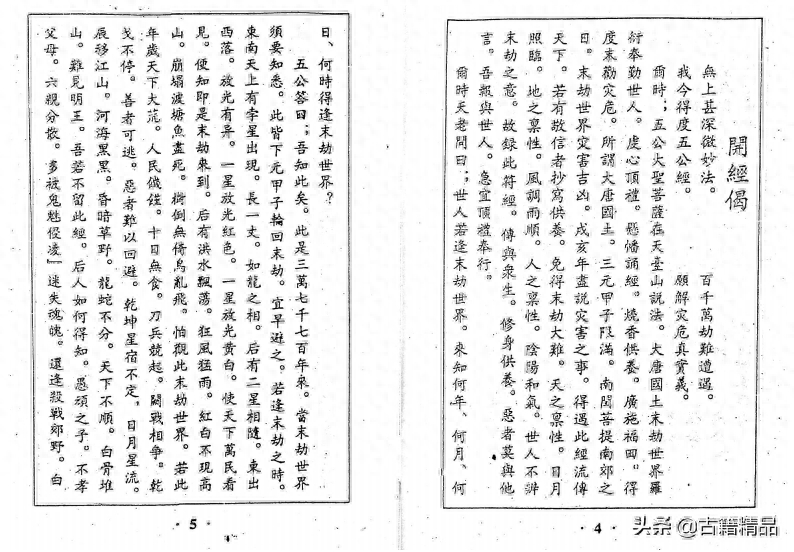 開經偈
無上甚深微妙法。 百千萬劫難遭遇。
我今得度五公經。 願解災危真實義。
爾時；五公大聖菩薩在天臺山説法。大唐國土末劫世界羅
衍奉勤世人。虔心頂禮。懸幡誦經。燒香供養。廣施福田。得
度末勸災危。所謂大唐國土。三元甲子限滿。南閻菩提南郊之
日。末劫世界灾害吉凶。戌亥年盡説灾害之事。得遇此經流傳
天下。若有敬信者抄寫供養。免得末劫大難。天之禀性。日月
照臨。地之禀性。風調雨順。人之禀性。陰陽和氣。世人不辨
末劫之意。故録此符經。傳與衆生。修身供養。惡者莫與他
言。吾報與世人。急宜頂禮奉行。
爾時天老問曰；世人若逢末劫世界。來知何年、何月、何
· 4 ·
日、何時得逢末劫世界？
五公答曰；吾知此矣。此是三萬七千七百年來。當末劫世界
須要知悉。此皆下元甲子輪回末劫。宜早避之。若逢末劫之時。
東南天上有孛星出現。長一丈。如龍之相。后有二星相隨。東出
西落。放光有异。一星放光紅色。一星放光黄白。使天下萬民看
見。便知即是末劫來到。后有洪水飄蕩。狂風猛雨。紅白不現高
山。崩塌渡塘魚盡死。樹倒無倚鳥亂飛。怕觀此末劫世界。若此
年歲天下大荒。人民饑饉。十日無食。刀兵競起。鬪戰相争。乾
戈不停。善者可逃。惡者難以回避。乾坤星宿不定。日月星流。
辰移江山。河海黑黑。昏暗草野。龍蛇不分。天下不順。白骨堆
山。難見明王。吾若不留此經。后人如何得知。愚頑之子。不孝
父母。六親分散。多被鬼魅侵凌」迷失魂魄。還逢殺戰郊野。白
· 5 ·
头条 @古籍精品